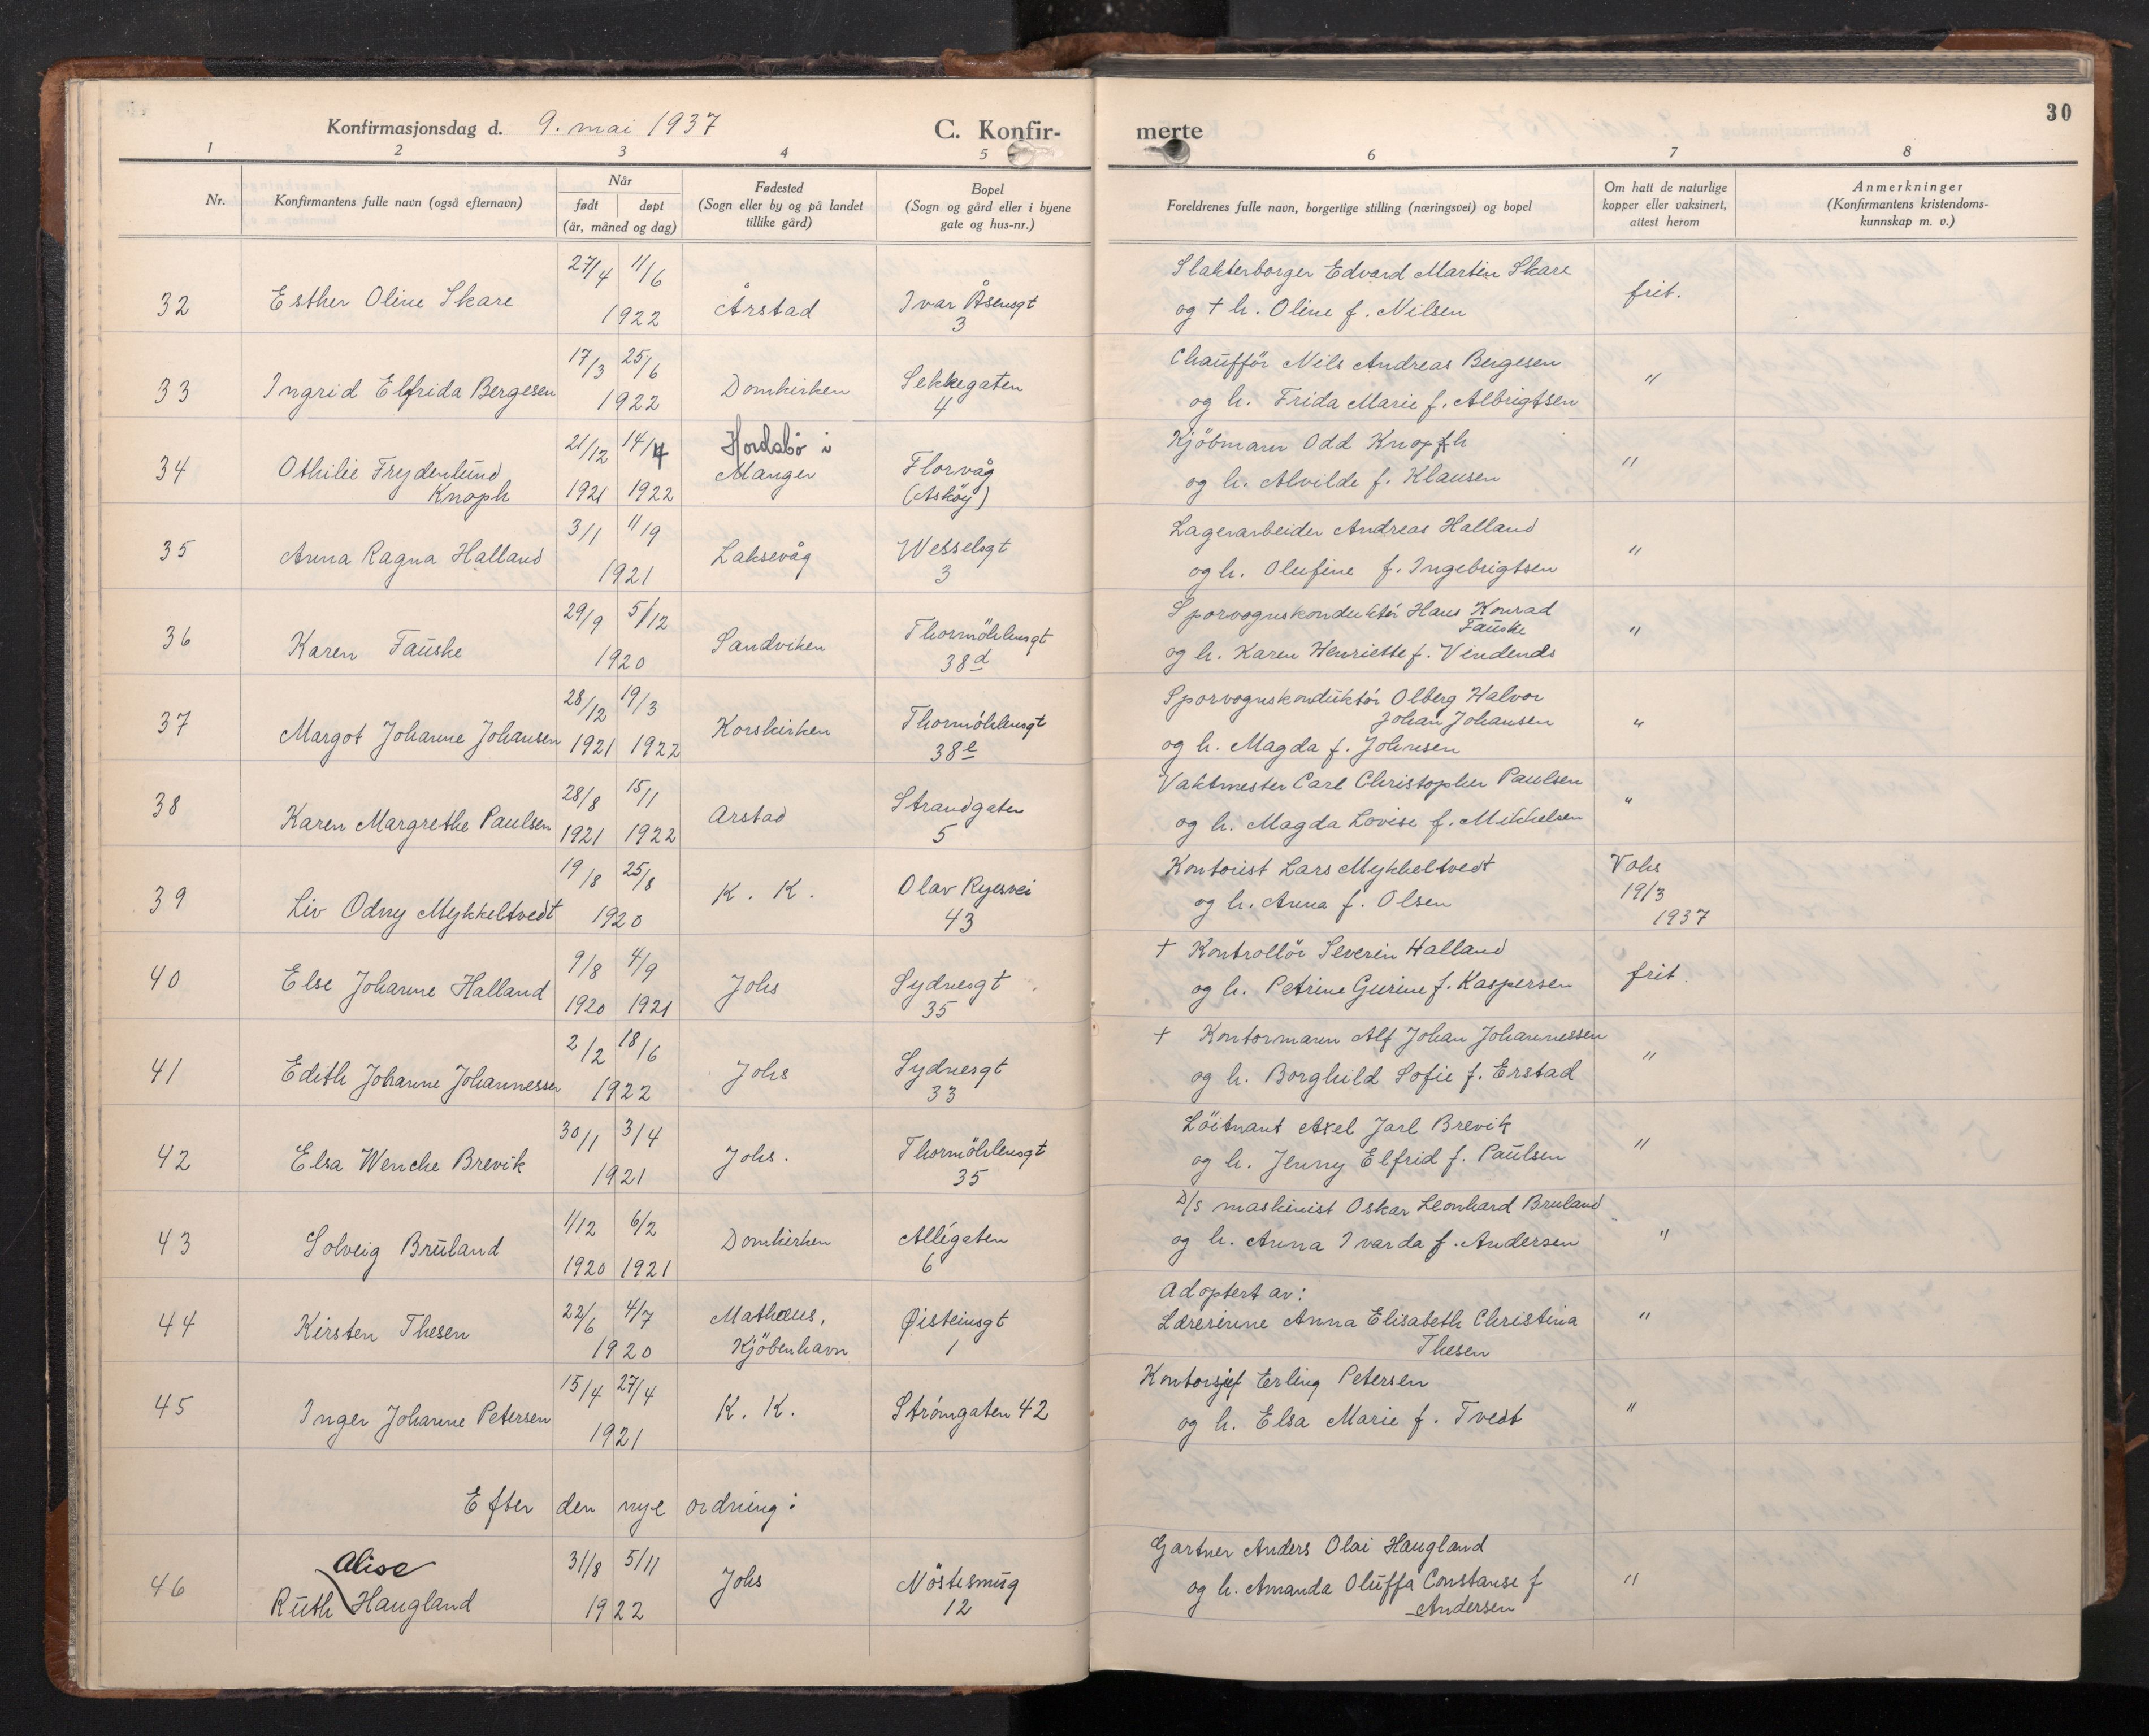 30
Konfirmasjonsdag d. 9. mai 1937 C. Konfir- merte
1 2 3 4 5 6 7 8
Nr. Konfirmantens fulle navn (også efternavn) Når født døpt (år, måned og dag) Fødested (Sogn eller by og på landet tillike gård) Bopel (Sogn og gård eller i byene gate og hus-nr.) Foreldrenes fulle navn, borgerlige stilling (næringsvei) og bopel Om hatt de naturlige kopper eller vaksinert, attest herom Anmerkninger (Konfirmantens kristendoms- kunnskap m. v.)
27/4 11/6 Slakterborger Edvard Martin Skare
32 Esther Oline Skare 1922 Årstad Ivar Åsensgt 3 og + h. Oline f. Nilsen frit.
17/3 25/6 Chauffør Nils Andreas Bergesen
33 Ingrid Elfrida Bergesen 1922 Domkirken Sekkegaten 4 og h. Frida Marie f. Albrigtsen "
21/12 14/4 Hordabø i Kjöbmann Odd Knopfh
34 Othilie Frydenlund Manger Florvåg og h. Alvilde f. Klausen "
Knoph 1921 1922 (Asköy)
3/1 11/9 Lagerarbeider Andreas Halland
35 Anna Ragna Halland 1921 Laksevåg Wesselsgt 3 og h. Olufine f. Ingebrigtsen "
29/9 5/12 Sporvognskonduktör Hans Konrad Fauske
36 Karen Fauske 1920 Sandviken Thormöhlensgt 38d og h. Karen Henriette f. Vindends "
28/12 19/3 Sporvognskonduktör Olberg Halvor Johan Johansen
37 Margot Johanne Johansen 1921 1922 Korskirken Thormöhlensgt 38e og h. Magda f. Johnsen "
28/8 15/1 Vaktmester Carl Christopher Paulsen
38 Karen Margrethe Paulsen 1921 1922 Arstad Strandgaten 5 og h. Magda Lovise f. Mikkelsen "
19/8 25/8 Kontorist Lars Mykkeltvedt Vaks
39 Liv Odny Mykkeltvedt 1920 K. K. Olav Ryesvei 43 og h. Anna f. Olsen 19/3 1937
9/8 4/9 + Kontrollör Severin Halland
40 Else Johanne Halland 1920 1921 Johs Sydnesgt. 35 og h. Petrine Gurine f. Kaspersen frit.
2/2 18/6 + Kontormann Alf Johan Johannessen
41 Edith Johanne Johannessen 1922 Johs Sydnesgt 33 og h. Borghild Sofie f. Erstad "
30/1 3/4 Löitnant Axel Jarl Brevik
42 Elsa Wenche Brevik 1921 Johs. Thormöhlensgt 35 og h. Jenny Elfrid f. Paulsen "
1/12 6/2 D/S maskinist Oskar Leonhard Bruland
43 Solveig Bruland 1920 1921 Domkirken Allégaten 6 og h. Anna Ivarda f. Andersen "
22/6 4/7 Adoptert av:
44 Kirsten Thesen 1920 Mathæus, Kjöbenhavn Øisteinsgt 1 Lærerinne Anna Elisabeth Christina Thesen "
15/4 27/4 Kontorsjef Erling Petersen
45 Inger Johanne Petersen 1921 K. K. Strömgaten 42 og h. Elsa Marie f. Tvedt "
Efter den nye ordning:
Alise 31/8 5/11 Gartner Anders Olai Haugland
46 Ruth Haugland 1922 Johs Nöstesmug 12 og h. Amanda Oluffa Constanse f "
Andersen